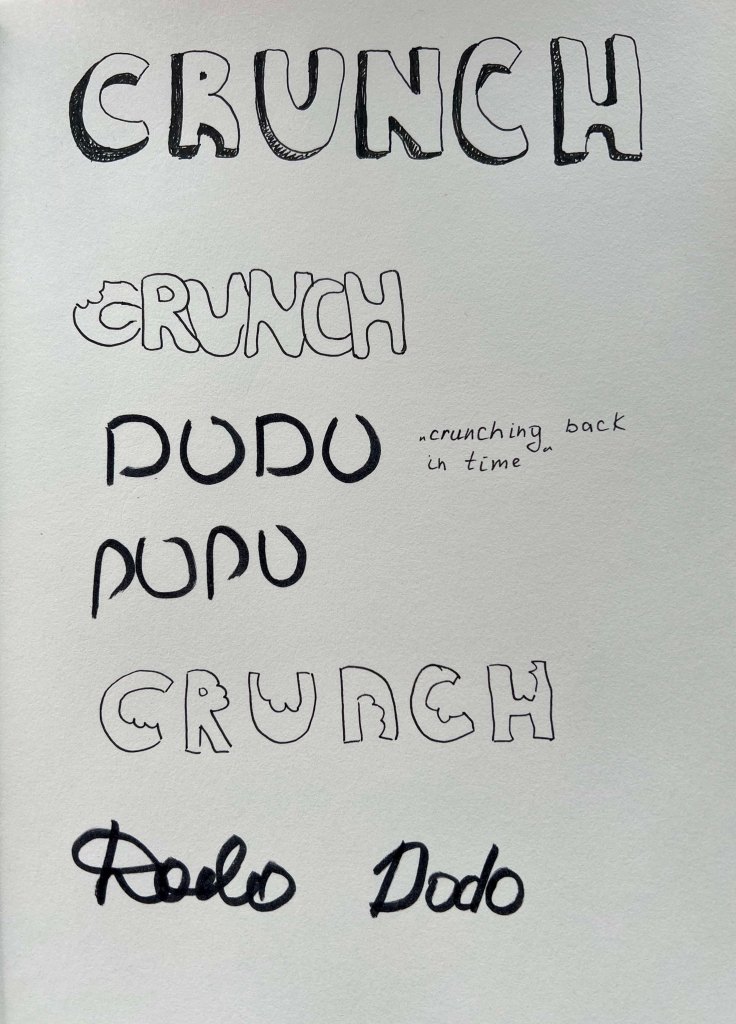 CRUNCH
CRUNCH
DODO
„crunching" back
in time
DODO
CRUNCH
Dodo Dodo